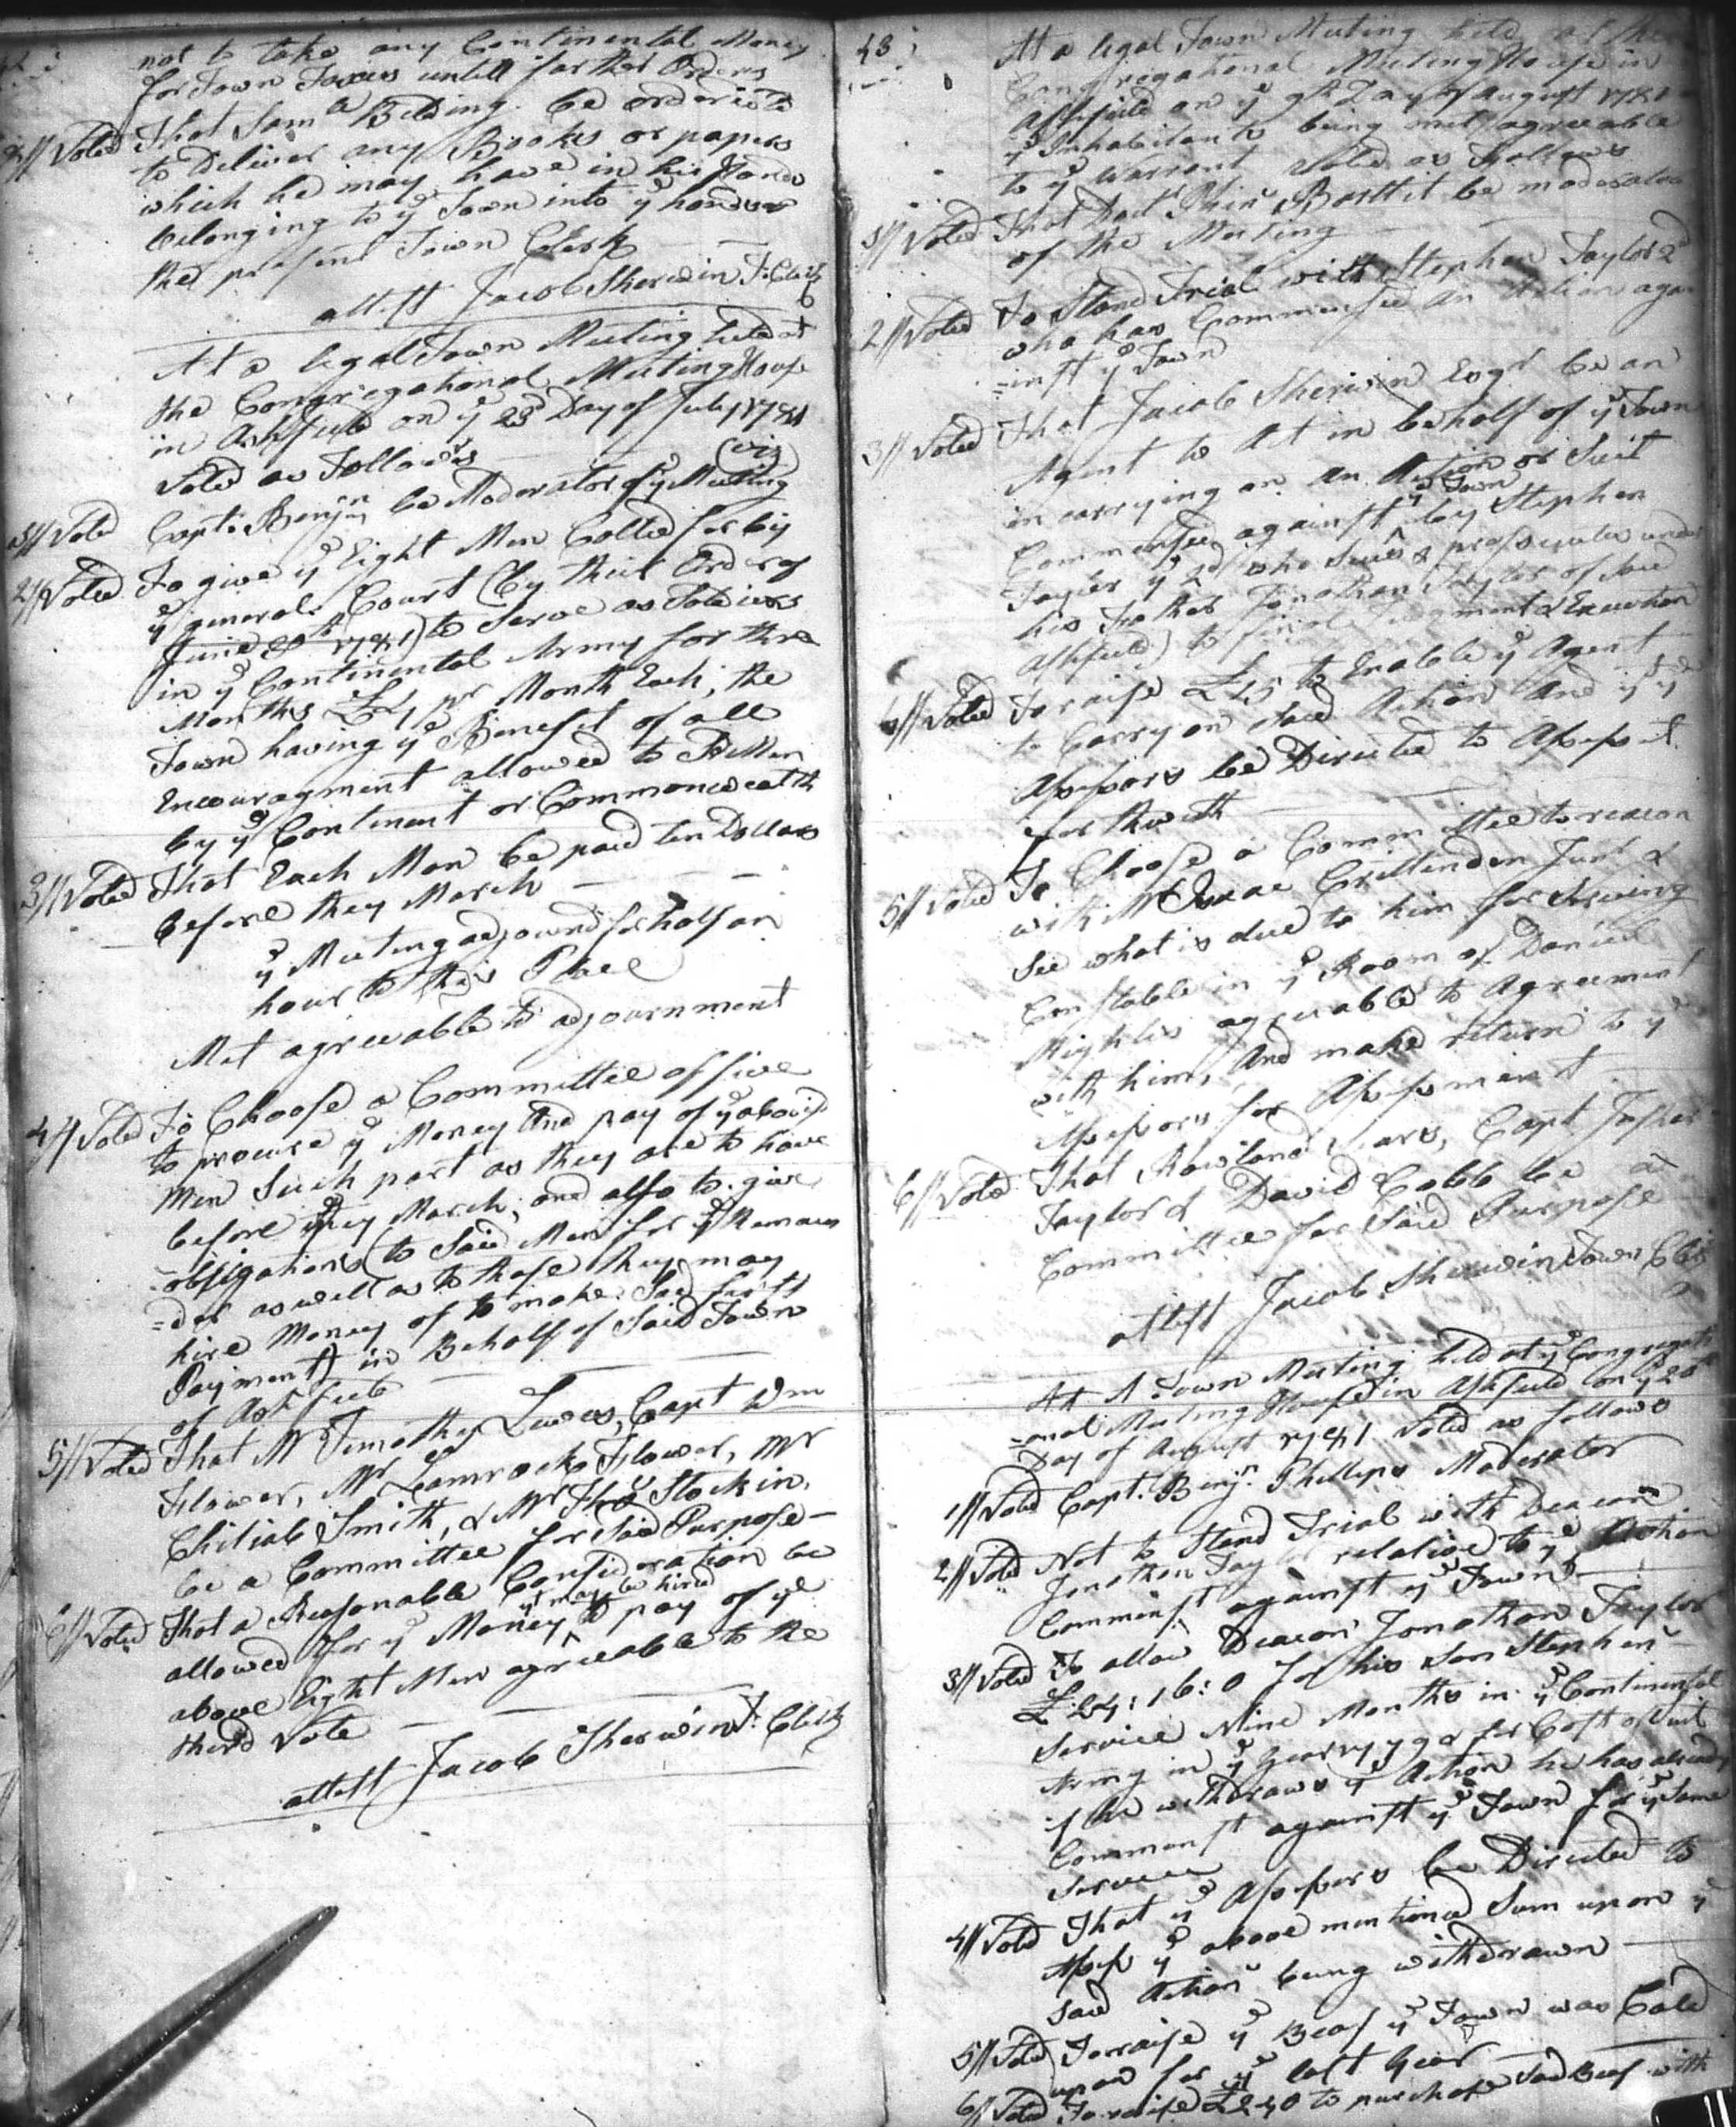 not to take any Continental Money
for Town Taxes untill farther Orders
Voted That Saml Belding be ordered to
to Deliver any Books or papers
which he may have in his Hands
belonging to ye Town into ye hands of
the present Town Clerk
attest Jacob Sherwin T: Clerk
At a legal Town Meeting held at
the Congregational Meeting House
in Ashfield on ye 23d Day of July 1781
Voted as Follows (viz)
1// Voted Capt: Benjn be Moderator of ye Meeting
2// Voted To give ye Eight Men Called for by
ye general Court (by their Order of
June 1781) to Serve as Soldiers
in ye Continental Army for three
Months £4 pr Month Each, the
Town having ye Benefit of all
Encouragment allowed to sd Men
by ye Continent or Commonwealth
3// Voted That Each Man be paid ten Dollars
before they March
ye Meeting adjournd for half an
hour to this Place
Met agreeable to adjournment
4// Voted To Choose a Committee of five
to procure ye Money and pay of ye above sd
Men Such part as they are to have
before they March, and also to give
obligations (to Said Men for ye Remain
=der as well as to those they may
hire Money of to make Said first
Payment) in Behalf of Said Town
of Ashfield
5// Voted That Mr Timothy Lewes, Capt Wm
Flower, Mr Lamrock Flower, Mr
Chiliab Smith, & Mr Thos Stockin,
be a Committee for Said Purpose
6// Voted That a Reasonable Consideration be
yt may be hired
allowed for ye Money to pay of ye
above Eight Men agreeable to the
third Vote
attest Jacob Sherwin T: Clerk
43
At a legal Town Meeting held at the
Congregational Meeting House in
Ashfield on ye 9th Day of August 1781
ye Inhabitants being met agreeable
to ye Warrent Voted as Follows
1// Voted That Doct Phins Bartlit be moderator
of the Meeting
2// Voted To Stand Trial with Stephen Taylor 2d
who has Commensed an Action aga
=inst ye Town
3// Voted That Jacob Sherwin Esqr be an
Agent to Act in behalf of ye Town
in carrying on an Action or Suit
ye Town
Commensed against by Stephen
Taylor ye 2d (who Sues & prosecutes under
his Father Jonathan Taylor of said
Ashfield) to final Judgment & Execution
4// Voted To raise £15 to Enable ye Agent
to Carry on said Action And yt ye
Assessors be Directed to Assess it
forthwith
5// Voted To Choose a Committee to reacon
with Mr Isaac Crittenden Junr &
See what is due to him for Serving
Constable in ye Room of Daniel
agreeable to Agreement
with him, And make return to ye
Assessors for Assessment
6// Voted That Rowland Sears, Capt Jasher
Taylor & David Cobb be a
Committee for Said Purpose
attest Jacob Sherwin Town Clerk
At A Town Meeting held at ye Congregati
=onal Meeting House in Ashfield on ye 20th
Day of August 1781 Voted as follows
1// Voted Capt. Benjn. Phillips Moderator
2// Voted Not to Stand Trial with Deacon
Jonathan Taylor relative to ye Action
Commenst against ye Town
3// Voted To allow Deacon Jonathan Taylor
£24:16:0 for his Son Stephens
Service Nine Months in ye Continental
Army in ye year 1779 & for Cost of Suit
if he withdraws ye Action he has already
Commenst against ye Town for ye Same
Service
4// Voted That ye Assessors be Directed to
Assess ye above mentioned Sum upon ye
said Action being withdrawn
5// Voted To raise ye Beaf ye Town was Cald
upon for ye last year
6// Voted To raise £240 to purchase said Beef with